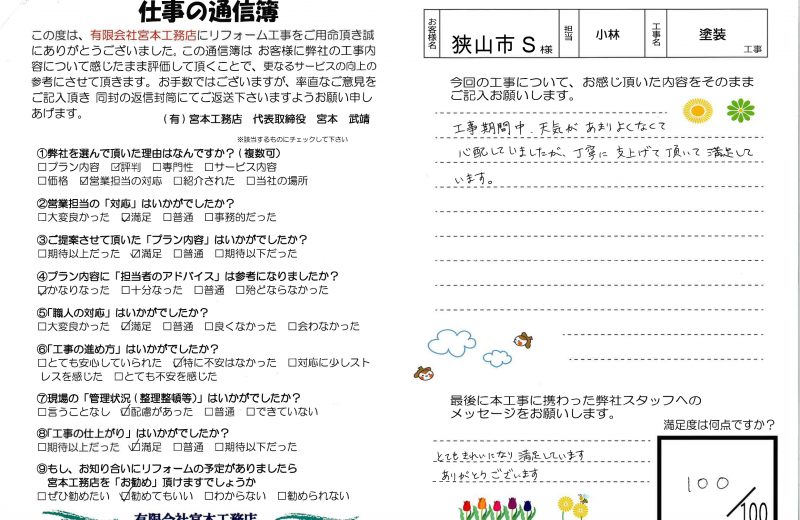 仕事の通信簿
この度は、有限会社宮本工務店にリフォーム工事をご用命頂き誠
にありがとうございました。この通信簿は お客様に弊社の工事内
容について感じたまま評価して頂くことで、更なるサービスの向上の
参考にさせて頂きます。お手数ではございますが、率直なご意見を
ご記入頂き 同封の返信封筒にてご返送下さいますようお願い申し
あげます。
(有)宮本工務店 代表取締役 宮本 武靖
※該当するものにチェックして下さい
①弊社を選んで頂いた理由はなんですか?(複数可)
□プラン内容 ☑評判 □専門性 □サービス内容
□価格 ☑営業担当の対応 □紹介された □当社の場所
②営業担当の「対応」はいかがでしたか?
□大変良かった ☑満足 □普通 □事務的だった
③ご提案させて頂いた「プラン内容」はいかがでしたか?
□期待以上だった ☑満足 □普通 □期待以下だった
④プラン内容に「担当者のアドバイス」は参考になりましたか?
☑かなりなった □十分なった □普通 □殆どならなかった
⑤「職人の対応」はいかがでしたか?
□大変良かった ☑満足 □普通 □良くなかった □会わなかった
⑥「工事の進め方」はいかがでしたか?
□とても安心していられた ☑特に不安はなかった □対応に少しスト
レスを感じた □とても不安を感じた
⑦現場の「管理状況(整理整頓等)」はいかがでしたか?
□言うことなし ☑配慮があった □普通 □できていない
⑧「工事の仕上がり」はいかがでしたか?
□期待以上だった ☑満足 □普通 □期待以下だった
⑨もし、お知り合いにリフォームの予定がありましたら
宮本工務店を「お勧め」頂けますでしょうか
□ぜひ勧めたい ☑勧めてもいい □わからない □勧められない
有限会社宮本工務店
お客様名 狭山市 S 様 担当 小林 工事名 塗装 工事
今回の工事について、お感じ頂いた内容をそのまま
ご記入お願いします。
工事期間中、天気があまりよくなくて
心配していましたが、丁寧に仕上げて頂いて満足して
います。
最後に本工事に携わった弊社スタッフへの
メッセージをお願いします。
満足度は何点ですか?
とてもきれいになり満足しています
ありがとうございます
100/100